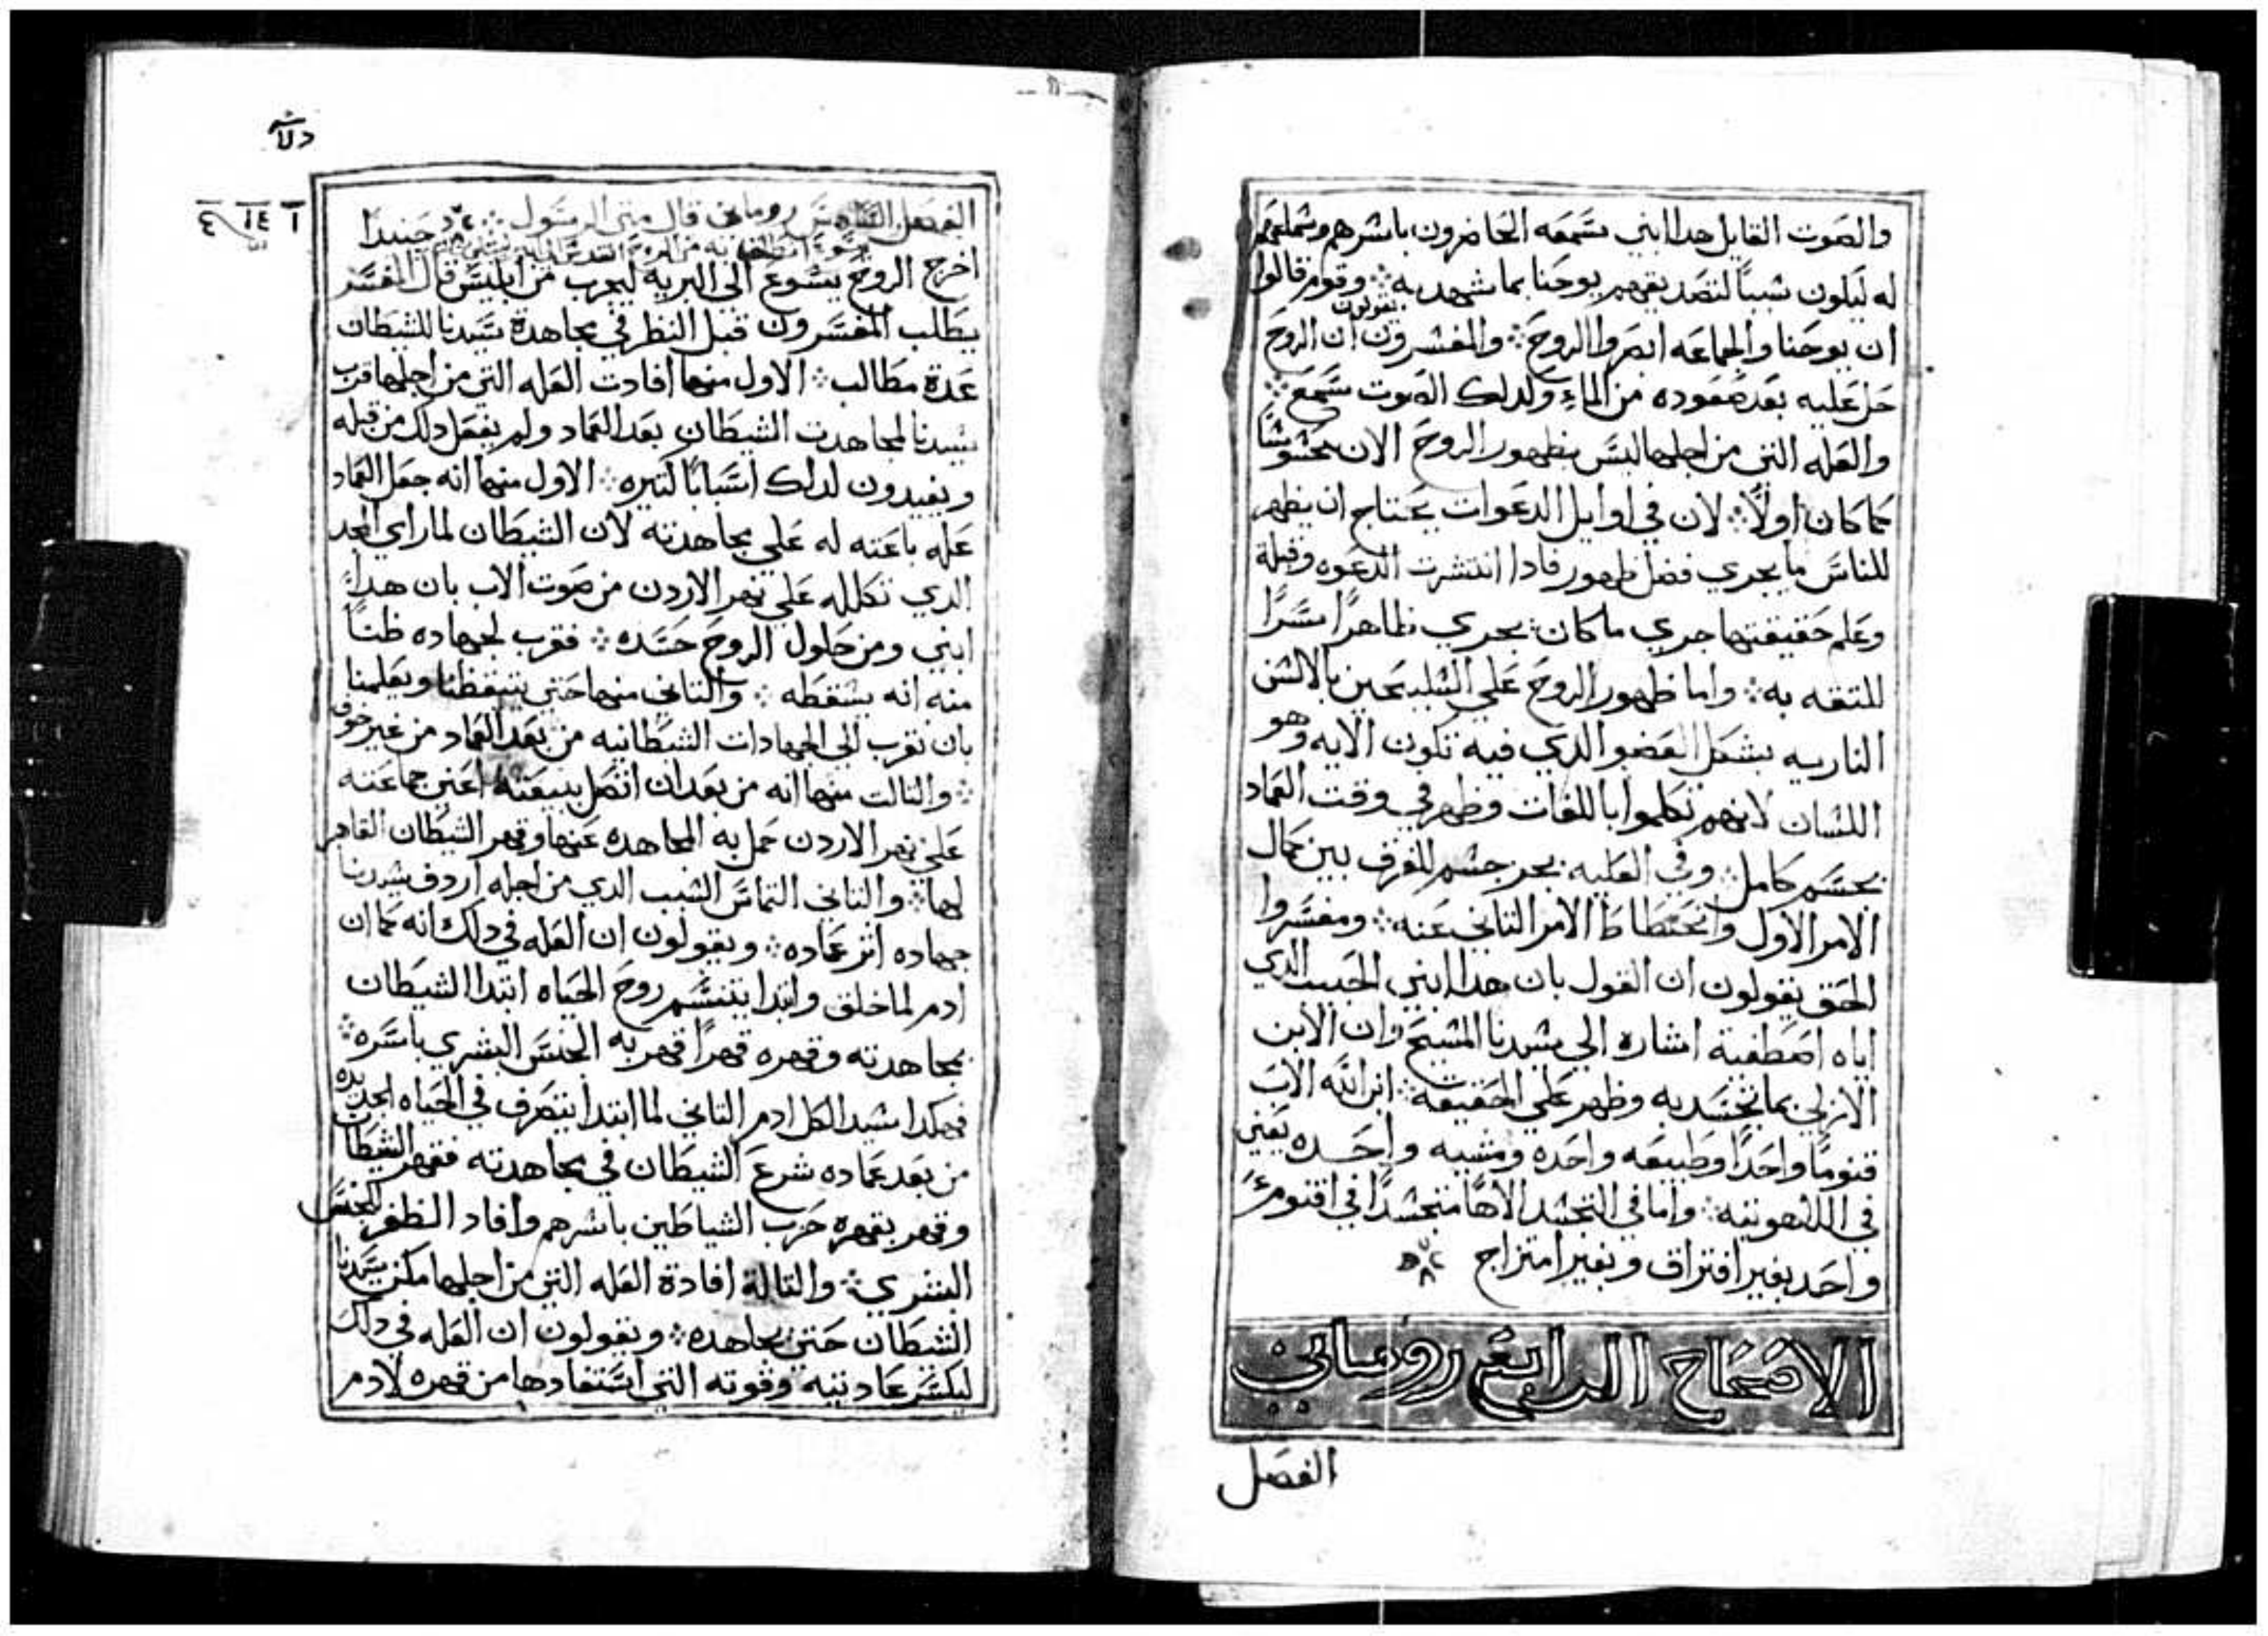 والصوت القايل هدا ابني سمعه الحاضرون باسرهم وسماعهم
له ليكون سببا لتصديقهم يوحنا بما شهد به ܀ وقوم قالوا
ان يوحنا والجماعه ابصروا الروح ܀ والمفسرون يقولون ان الروح
حل عليه بعد صعوده من الماء ولدلك الصوت سمع ܀
والعله التي من اجلها ليس ظهور الروح الان محسوسا
كما كان اولا ܀ لان في اوايل الدعوات يحتاج ان يظهر
للناس ما يجري فضل ظهور فادا انتشرت الدعوه
وعلم حقيقتها جري ما كان يجري ظاهرا سرا
للتقه به ܀ واما ظهور الروح علي السليحين بالالسن
الناريه بشكل العضو الدي فيه تكون الايه وهو
اللسان لانهم تكلموا باللغات وظهر في وقت العماد
بجسم كامل ܀ وفي العليه بجز جسم للفرق بين كمال
الامر الاول وانحطاط الامر التاني عنه ܀ ومفسروا
الحق يقولون ان القول بان هدا ابني الحبيب الدي
اياه اصطفيت اشاره الي سيدنا المسيح وان الابن
الازلي بما تجسد به وظهر علي الحقيقه ܀ ابن الله الاب
قنوما واحدا وطبيعه واحده ومشيه واحده يعني
في اللاهوتيه ܀ واما في التجسد الاها متجسدا في اقنوم
واحد بغير افتراق وبغير امتزاج
الاصحاح الرابع روماني
الفصل
الفصل السادس روماني قال متي الرسول ܀ حينيدا
اخرج الروح يسوع الي البريه ليجرب من ابليس قال المفسر
يطلب المفسرون قبل النظر في مجاهدة سيدنا للشيطان
عدة مطالب ܀ الاول منها افادت العله التي من اجلها قرب
سيدنا لمجاهدت الشيطان بعد العماد ولم يفعل دلك من قبله
ويفيدون لدلك اسبابا كتيره ܀ الاول منها انه جعل العماد
عله باعته له علي مجاهدته لان الشيطان لما راي المجد
الدي تكلله علي نهر الاردن من صوت الاب بان هدا
ابني ومن حلول الروح حسده ܀ فقرب لجهاده ظنا
منه انه يسقطه ܀ والتاني منها حتي يتيقظنا ويعلمنا
بان نقرب الي الجهادات الشيطانيه من بعد العماد من غير خوف
܀ والتالت منها انه من بعد ان اتصل ببيعته اعني جماعته
علي نهر الاردن حمل به المجاهده عنها وقهر الشيطان القاهر
لها ܀ والتاني التماس السبب الدي من اجله اردف سيدنا
جهاده اتر عماده ܀ ويقولون ان العله في دلك انه كما ان
ادم لما خلق وابتدا يتنسم روح الحياه ابتدا الشيطان
بمجاهدته وقهره قهرا قهر به الجنس البشري باسره ܀
فهكدا سيد الكل ادم التاني لما ابتدا يتصرف في الحياه الجديده
من بعد عماده شرع الشيطان في مجاهدته فقهر الشيطان
وقهر بقهره حزب الشياطين باسرهم وافاد الظفر للجنس
البشري ܀ والتالة افادة العله التي من اجلها مكن سيدنا
الشيطان حتي يجاهده ܀ ويقولون ان العله في دلك
ليكسر عاديته وقوته التي استفادها من قهره لادم